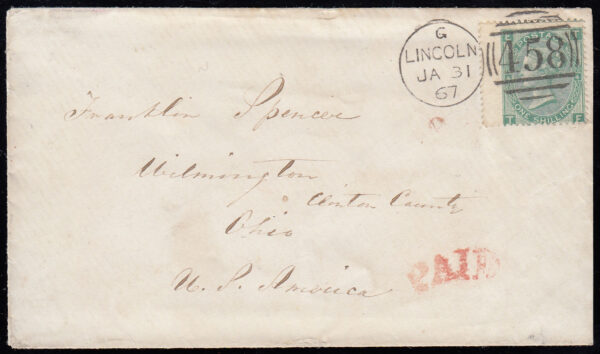 G
LINCOLN
JA 31
67
458
POSTAGE
ONE SHILLING
T E
Franklin Spencer
Wilmington
Clinton County
Ohio
U. S. America
PAID